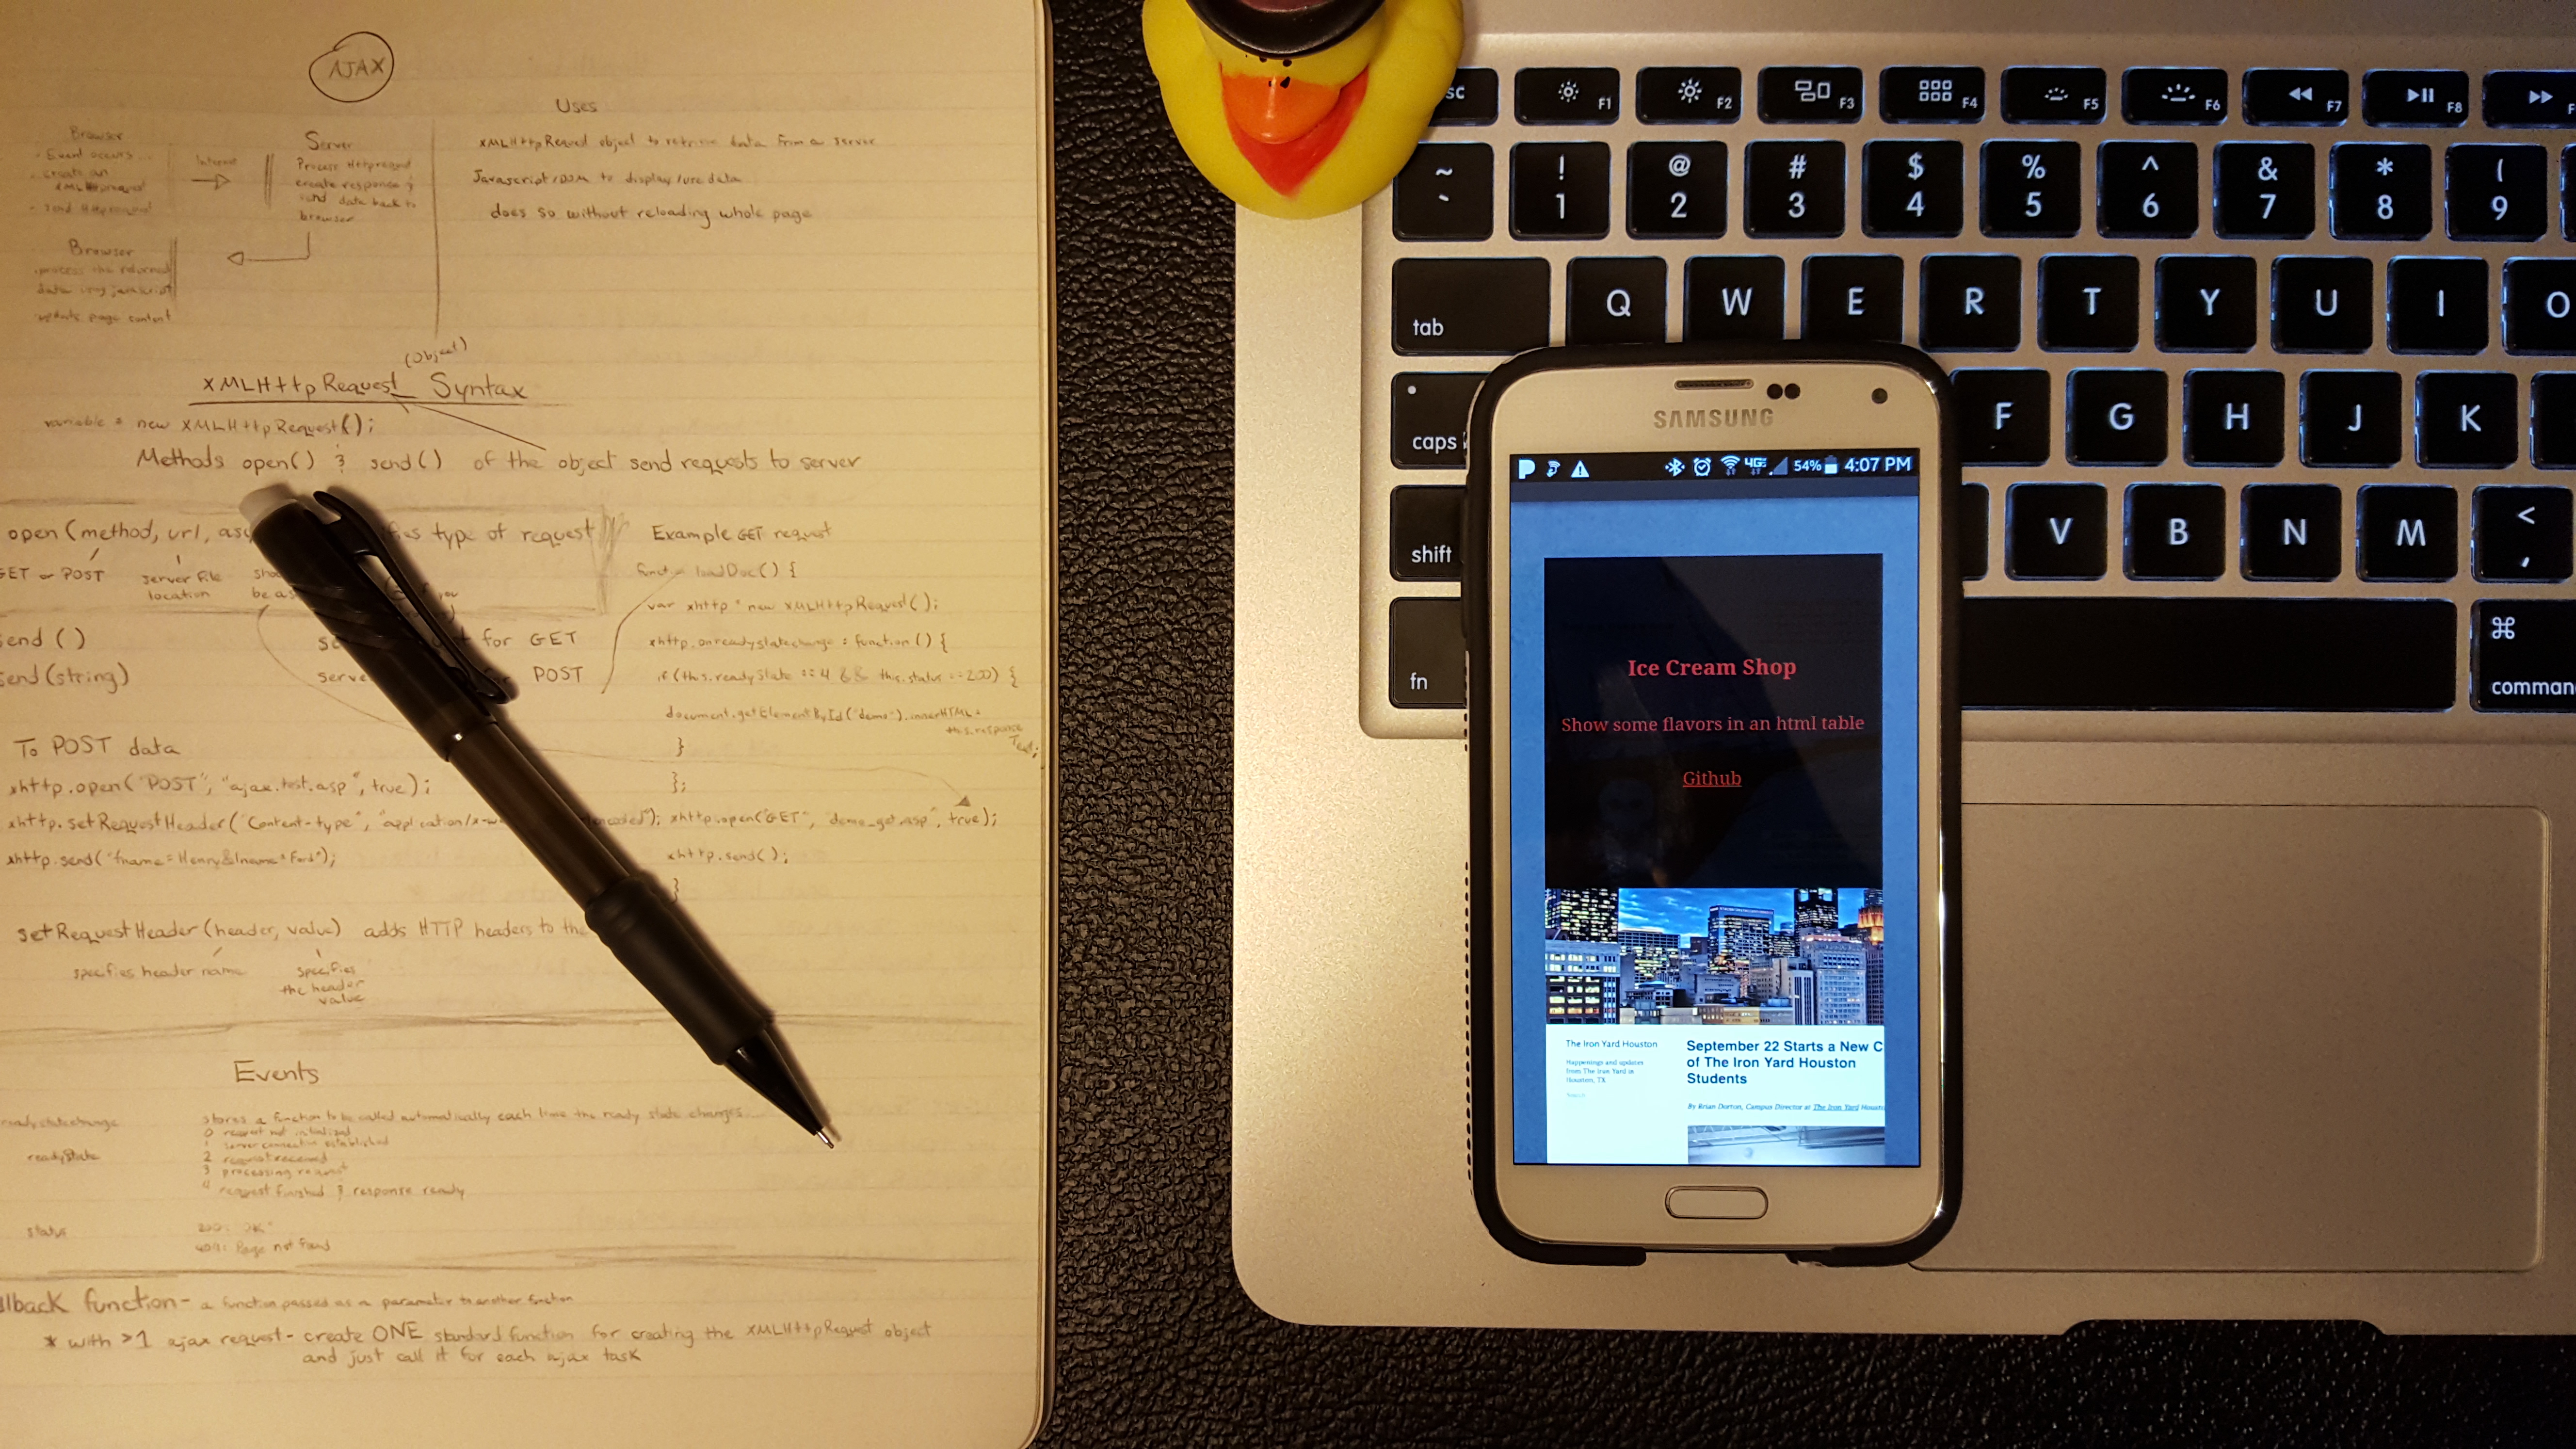 AJAX
Uses
Browser
. Event occurs...
. create an
XMLHttprequest
. send Httprequest
Internet
Server
Process Httprequest
create response &
send data back to
browser
Browser
.process the returned
data using javascript
.update page content
XMLHttpRequest object to retrieve data from a server
Javascript/DOM to display/use data
does so without reloading whole page
(object)
XMLHttpRequest Syntax
variable = new XMLHttpRequest();
Methods open() & send() of the object send requests to server
open (method, url, type of request
GET or POST
server file
location
be a
you
send () for GET
send(string) POST
Example GET request
function loadDoc() {
var xhttp = new XMLHttpRequest();
xhttp.onreadystatechange = function() {
if (this.readyState == 4 && this.status == 200) {
document.getElementById("demo").innerHTML =
this.response
Text;
}
};
xhttp.open("GET", "demo_get.asp", true);
xhttp.send();
}
To POST data
xhttp.open("POST", "ajax.test.asp", true);
xhttp.setRequestHeader("Content-type", "application/x-w encoded");
xhttp.send("fname=Henry&lname=Ford");
setRequestHeader (header, value) adds HTTP headers to the
specifies header name
specifies
the header
value
Events
readystatechange stores a function to be called automatically each time the ready state changes
readyState
0 request not initialized
1 server connection established
2 request received
3 processing request
4 request finished & response ready
status
200: "OK"
404: Page not found
llback function - a function passed as a parameter to another function
* with >1 ajax request - create ONE standard function for creating the XMLHttpRequest object
and just call it for each ajax task
sc F1 F2 F3 F4 F5 F6 F7 F8 F
~ ! @ # $ % ^ & * (
` 1 2 3 4 5 6 7 8 9
tab Q W E R T Y U I O
caps F G H J K
shift V B N M <
,
fn ⌘
comman
SAMSUNG
4G 54% 4:07 PM
Ice Cream Shop
Show some flavors in an html table
Github
The Iron Yard Houston
Happenings and updates
from The Iron Yard in
Houston, TX
Search
September 22 Starts a New C
of The Iron Yard Houston
Students
By Brian Dorton, Campus Director at The Iron Yard Houst